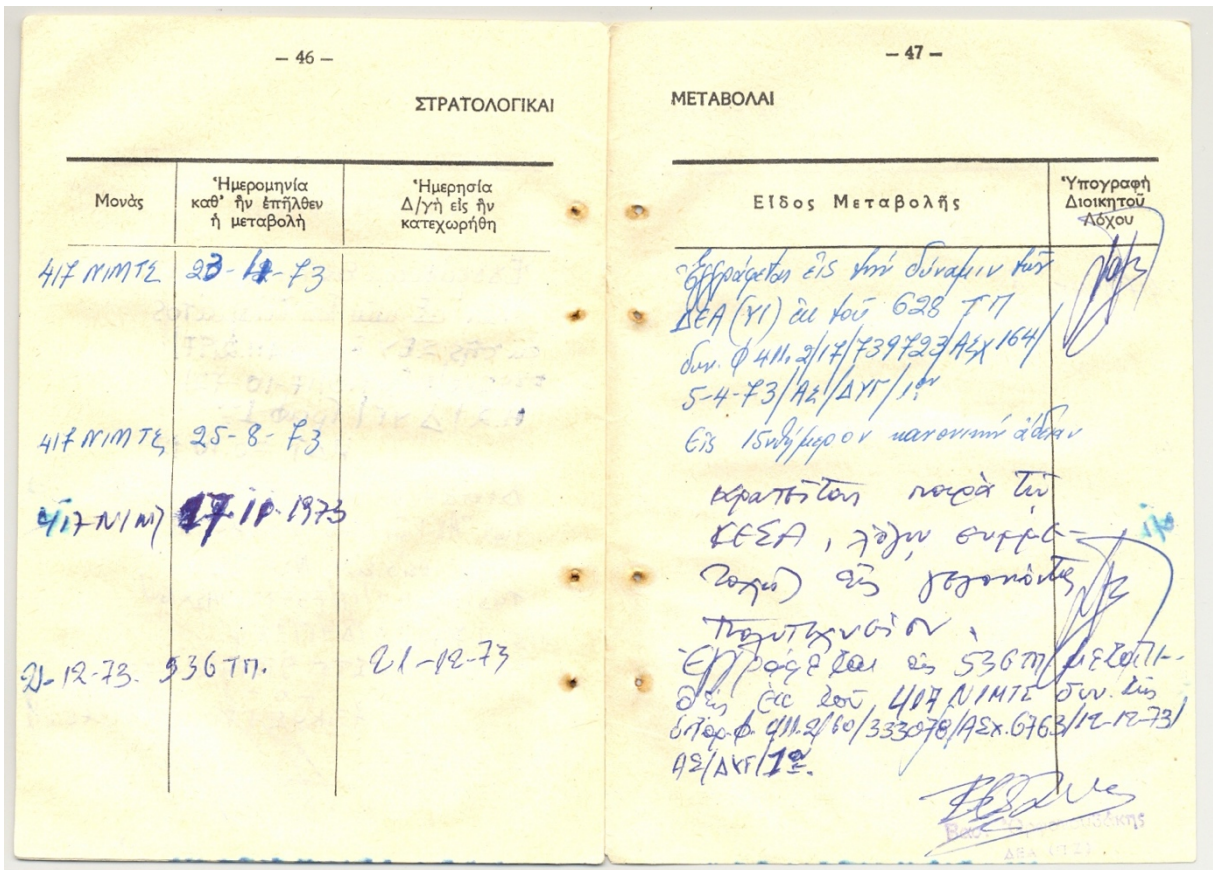 – 46 –
ΣΤΡΑΤΟΛΟΓΙΚΑΙ
Μονὰς
Ἡμερομηνία
καθ' ἣν ἐπῆλθεν
ἡ μεταβολὴ
Ἡμερησία
Δ/γὴ εἰς ἣν
κατεχωρήθη
417 ΝΙΜΤΣ 23-4-73
417 ΝΙΜΤΣ 25-8-73
417 ΝΙΜΤΣ 17-11-1973
21-12-73. 536 ΤΠ. 21-12-73
– 47 –
ΜΕΤΑΒΟΛΑΙ
Εἶδος Μεταβολῆς
Ὑπογραφὴ
Διοικητοῦ
Λόχου
Ἐγγράφεται εἰς τὴν δύναμιν τῶν
ΔΕΑ (ΥΙ) ἐκ τοῦ 628 ΤΠ
δυν. Φ 411.2/17/739723/ΑΣχ 164/
5-4-73/ΑΣ/ΔΥΓ/1ον
Εἰς 15νθήμερον κανονικὴν ἄδειαν
κρατεῖται παρὰ τῇ
ΚΕΣΑ, λόγῳ συμμε-
τοχῆς εἰς γεγονότα
Πολυτεχνείου.
Ἐγγράφεται εἰς 536 ΤΠ/μετατι-
θεὶς ἐκ τοῦ 417 ΝΙΜΤΣ δυν. τῆς
Φ. 411.2/60/333078/ΑΣχ.6763/12-12-73/
ΑΣ/ΔΥΓ/1ον.